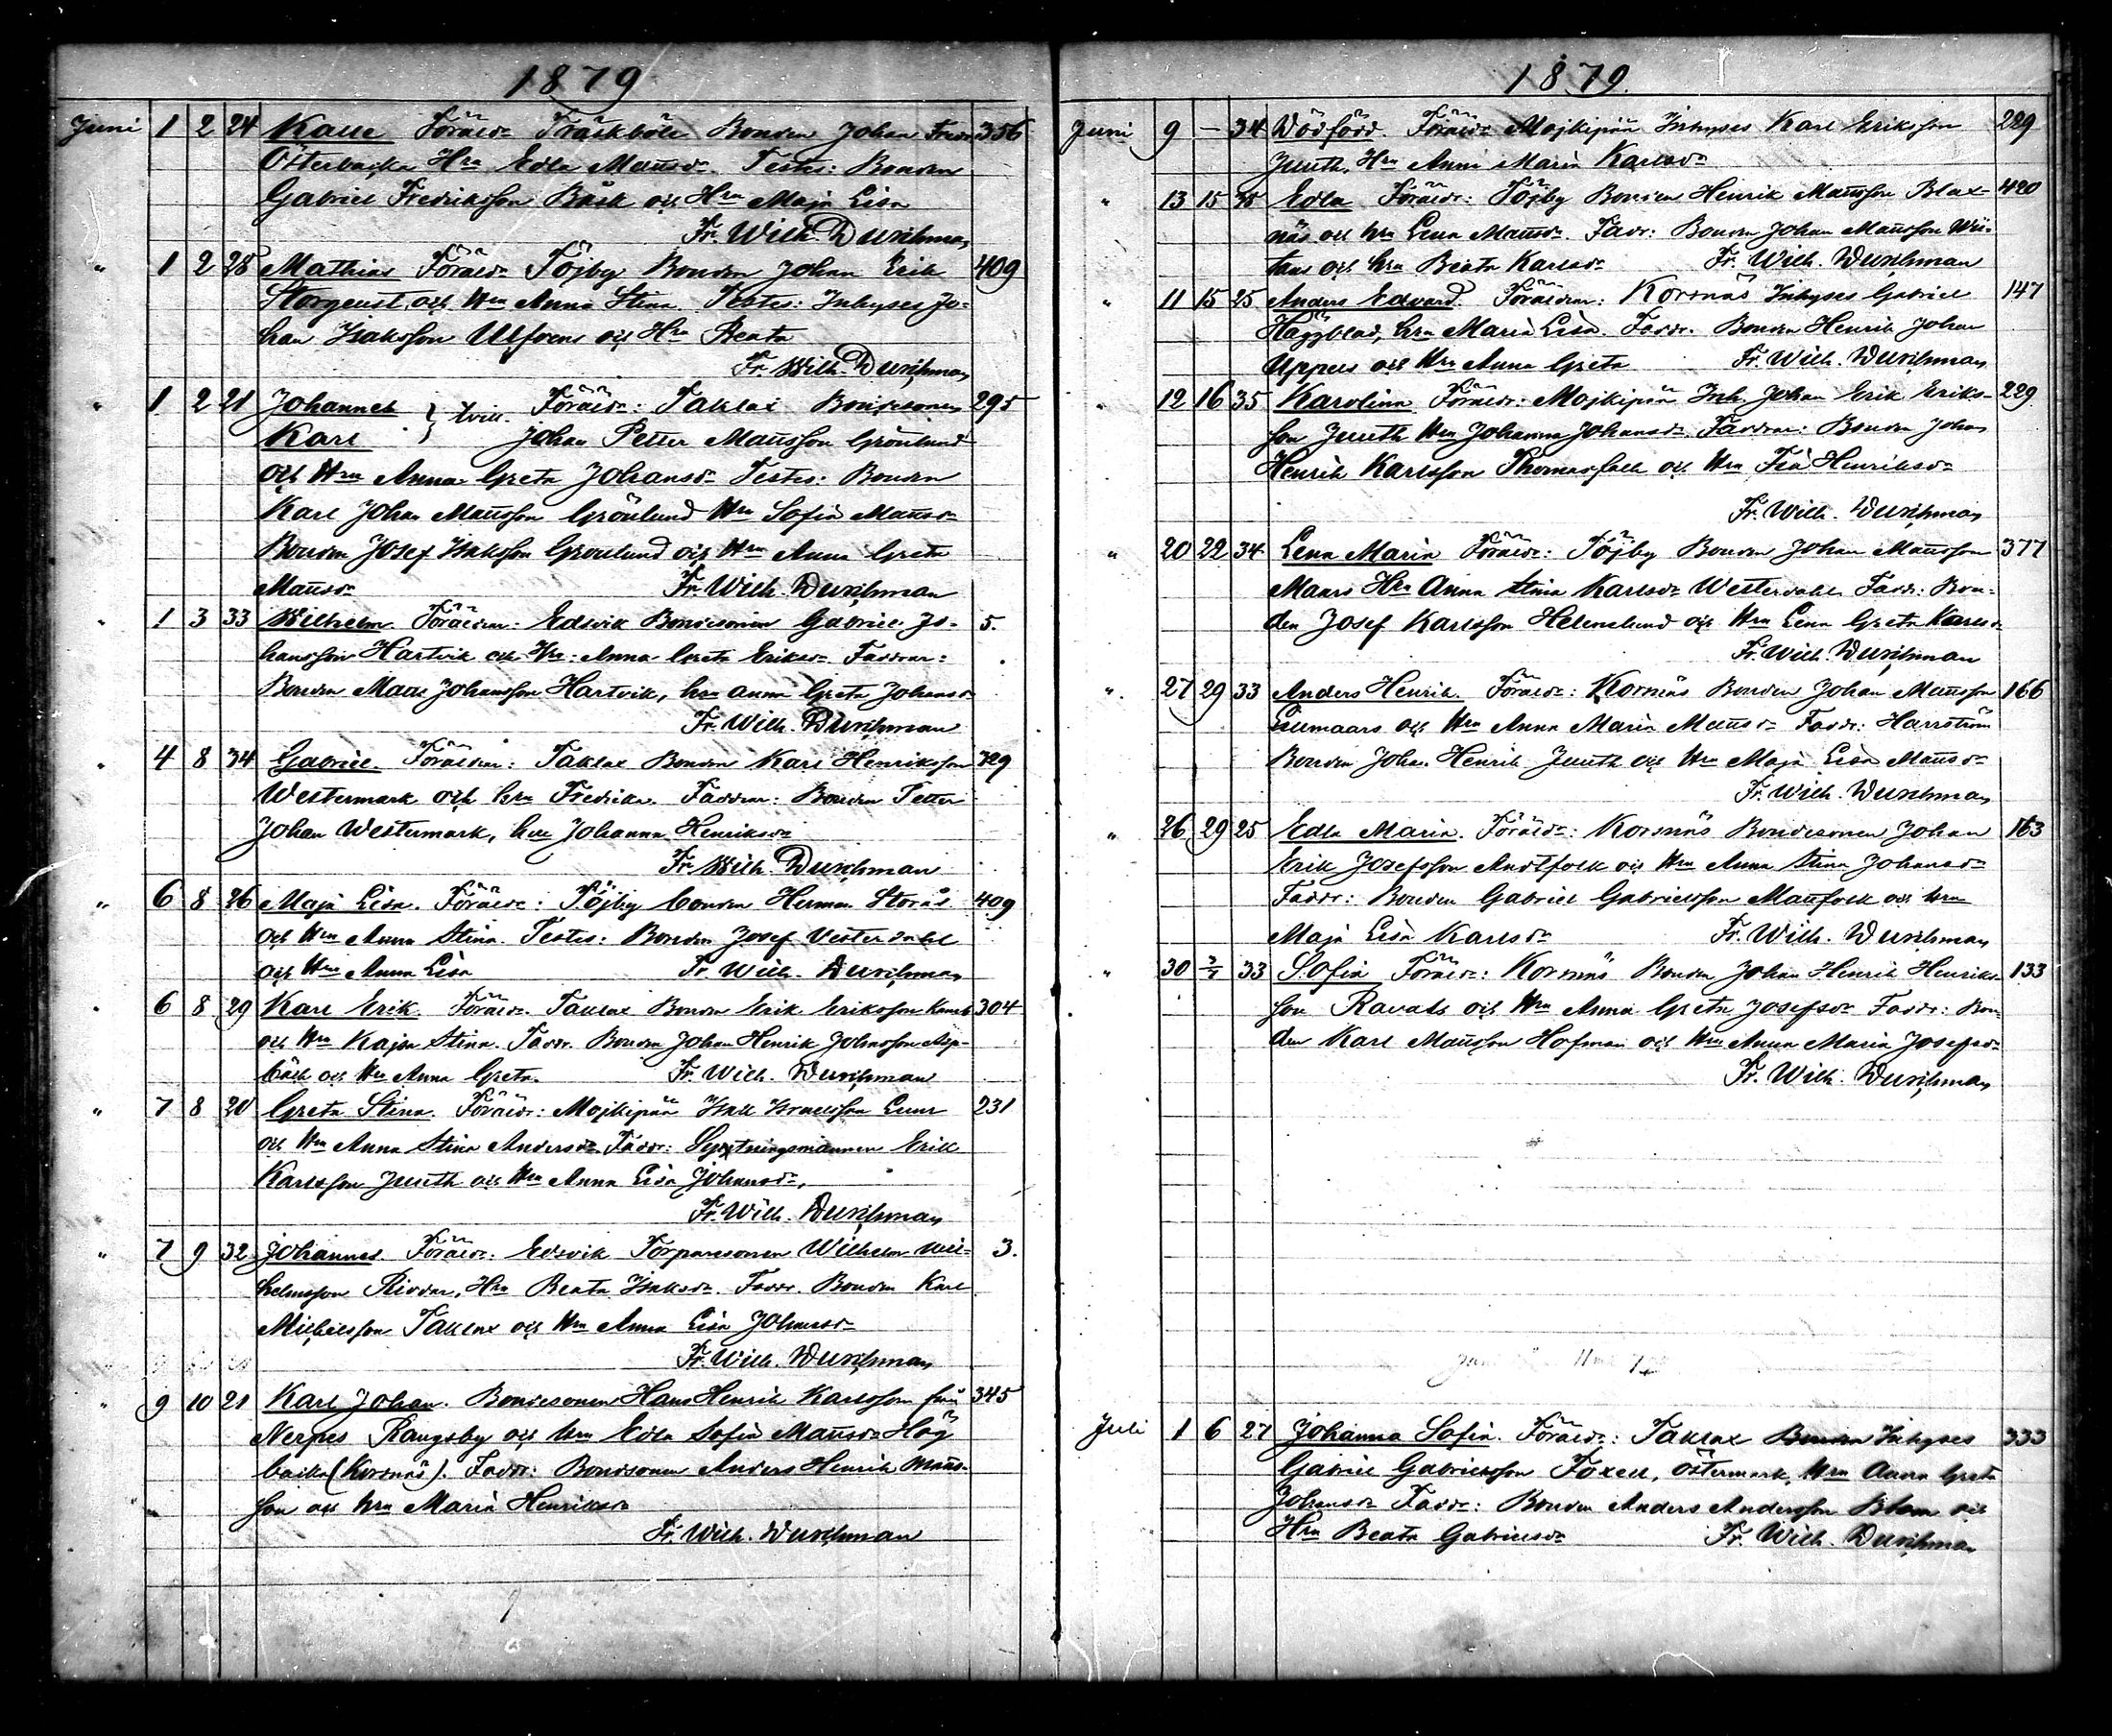 1879
Juni 1 2 24 Kalle Föräldr Träskböle Bonden Johan Fredr. 356
Österbacka Hru Edla Mattsdr. Testes: Bonden
Gabriel Fredriksson Bäsk och Hru Maja Lisa
Fr. Wilh. Durchman
" 1 2 28 Mathias Föräldr Töjby Bonden Johan Erik 409
Storgeust, och Hru Anna Stina. Testes: Inhyses Jo-
han Isaksson Ulfvens och Hru Beata
Fr. Wilh. Durchman
" 1 2 21 Johannes } tvill. Föräldr: Taklax Bondesonen 295
Karl } Johan Petter Mattsson Grönlund
och Hru Anna Greta Johansdr Testes: Bonden
Karl Johan Mattsson Grönlund Hru Sofia Mattsdr
Bonden Josef Isaksson Grönlund och Hru Anna Greta
Mattsdr Fr. Wilh. Durchman
" 1 3 33 Wilhelm. Föräldrar: Edsvik Bondesonen Gabriel Jo- 5.
hansson Hartvik och Hru: Anna Greta Eriksdr. Faddrar:
Bonden Matts Johansson Hartvik, hru Anna Greta Johansdr
Fr. Wilh. Durchman
" 4 8 34 Gabriel. Föräldrar: Taklax Bonden Karl Henriksson 329
Westermark och hru Fredrika. Faddrar: Bonden Petter
Johan Westermark, hru Johanna Henriksdr
Fr. Wilh. Durchman
" 6 8 26 Maja Lisa. Föräldr: Töjby bonden Herman Storås 409
och Hru Anna Stina. Testes: Bonden Josef Vesterdahl
och Hru Anna Lisa Fr. Wilh. Durchman
" 6 8 29 Karl Erik. Föräldr. Taklax Bonden Erik Eriksson 304
och Hru Kajsa Stina. Faddr. Bonden Johan Henrik Johnsson Asp-
bäck och Hru Anna Greta. Fr. Wilh. Durchman
" 7 8 20 Greta Stina. Föräldr: Mojkipää Isak Israelsson Luur 231
och Hru Anna Stina Andersdr. Faddr: Sytningsmannen Erik
Karlsson Juuth och Hru Anna Lisa Johansdr.
Fr. Wilh. Durchman
" 7 9 32 Johannes. Föräldr: Edsvik Torparesonen Wilhelm Wil- 3.
helmsson Riddar, Hru Beata Isaksdr. Faddr. Bonden Karl
Michelsson Taklax och Hru Anna Lisa Johansdr
Fr. Wilh. Durchman
" 9 10 21 Karl Johan. Bondesonen Hans Henrik Karlsson från 345
Nerpes Rangsby och hru Edla Sofia Mattsdr Hög
backa (Korsnäs). Faddr: Bondsonen Anders Henrik Matts-
son och hru Maria Henriksdr
Fr. Wilh. Durchman
1879.
Juni 9 – 34 Dödfödd. Föräldr Mojkipää Inhyses Karl Eriksson 229
Juuth, Hru Anna Maria Karlsdr
" 13 15 Edla Föräldr: Töjby Bonden Henrik Mattsson Blax- 420
näs och hru Lena Mattsdr. Faddr: Bonden Johan Mattsson Wii-
tans och hru Beata Karlsdr Fr. Wilh. Durchman
" 11 15 25 Anders Edvard. Föräldrar: Korsnäs Inhyses Gabriel 147
Häggblad, hru Maria Lisa. Faddr. Bonden Henrik Johan
Uppers och Hru Anna Greta Fr. Wilh. Durchman
" 12 16 35 Karolina Föräldr: Mojkipää Inh. Johan Erik Eriks- 229
son Juuth Hru Johanna Johansdr. Faddrar: Bonden Johan
Henrik Karlsson Thomasfolk och Hru Fia Henriksdr
Fr. Wilh. Durchman
" 20 22 34 Lena Maria Föräldr: Töjby Bonden Johan Mattsson 377
Maars Hru Anna Stina Karlsdr Westerdahl Faddr: Bon-
den Josef Karlsson Helenelund och Hru Lena Greta Karlsdr
Fr. Wilh. Durchman
" 27 29 33 Anders Henrik. Föräldr: Korsnäs Bonden Johan Mattsson 166
Lillmaars och Hru Anna Maria Mattsdr Faddr: Harrström
Bonden Johan Henrik Juuth och Hru Maja Lisa Mattsdr
Fr. Wilh. Durchman
" 26 29 25 Edla Maria. Föräldr: Korsnäs Bondesonen Johan 163
Erik Josefsson Andtfolk och Hru Anna Stina Johansdr
Faddr: Bonden Gabriel Gabrielsson Mattfolk och hru
Maja Lisa Karlsdr Fr. Wilh. Durchman
" 30 2/7 33 Sofia Föräldr: Korsnäs Bonden Johan Henrik Henriks- 133
son Ravals och Hru Anna Greta Josefsdr Faddr: Bon-
den Karl Mattsson Hofman och Hru Anna Maria Josefsdr
Fr. Wilh. Durchman
Juli 1 6 27 Johanna Sofia. Föräldr: Taklax Bonden Inhyses 333
Gabriel Gabrielsson Foxell, Östermark, Hru Anna Greta
Johansdr Faddr: Bonden Anders Andersson Blom och
Hru Beata Gabrielsdr Fr. Wilh. Durchman